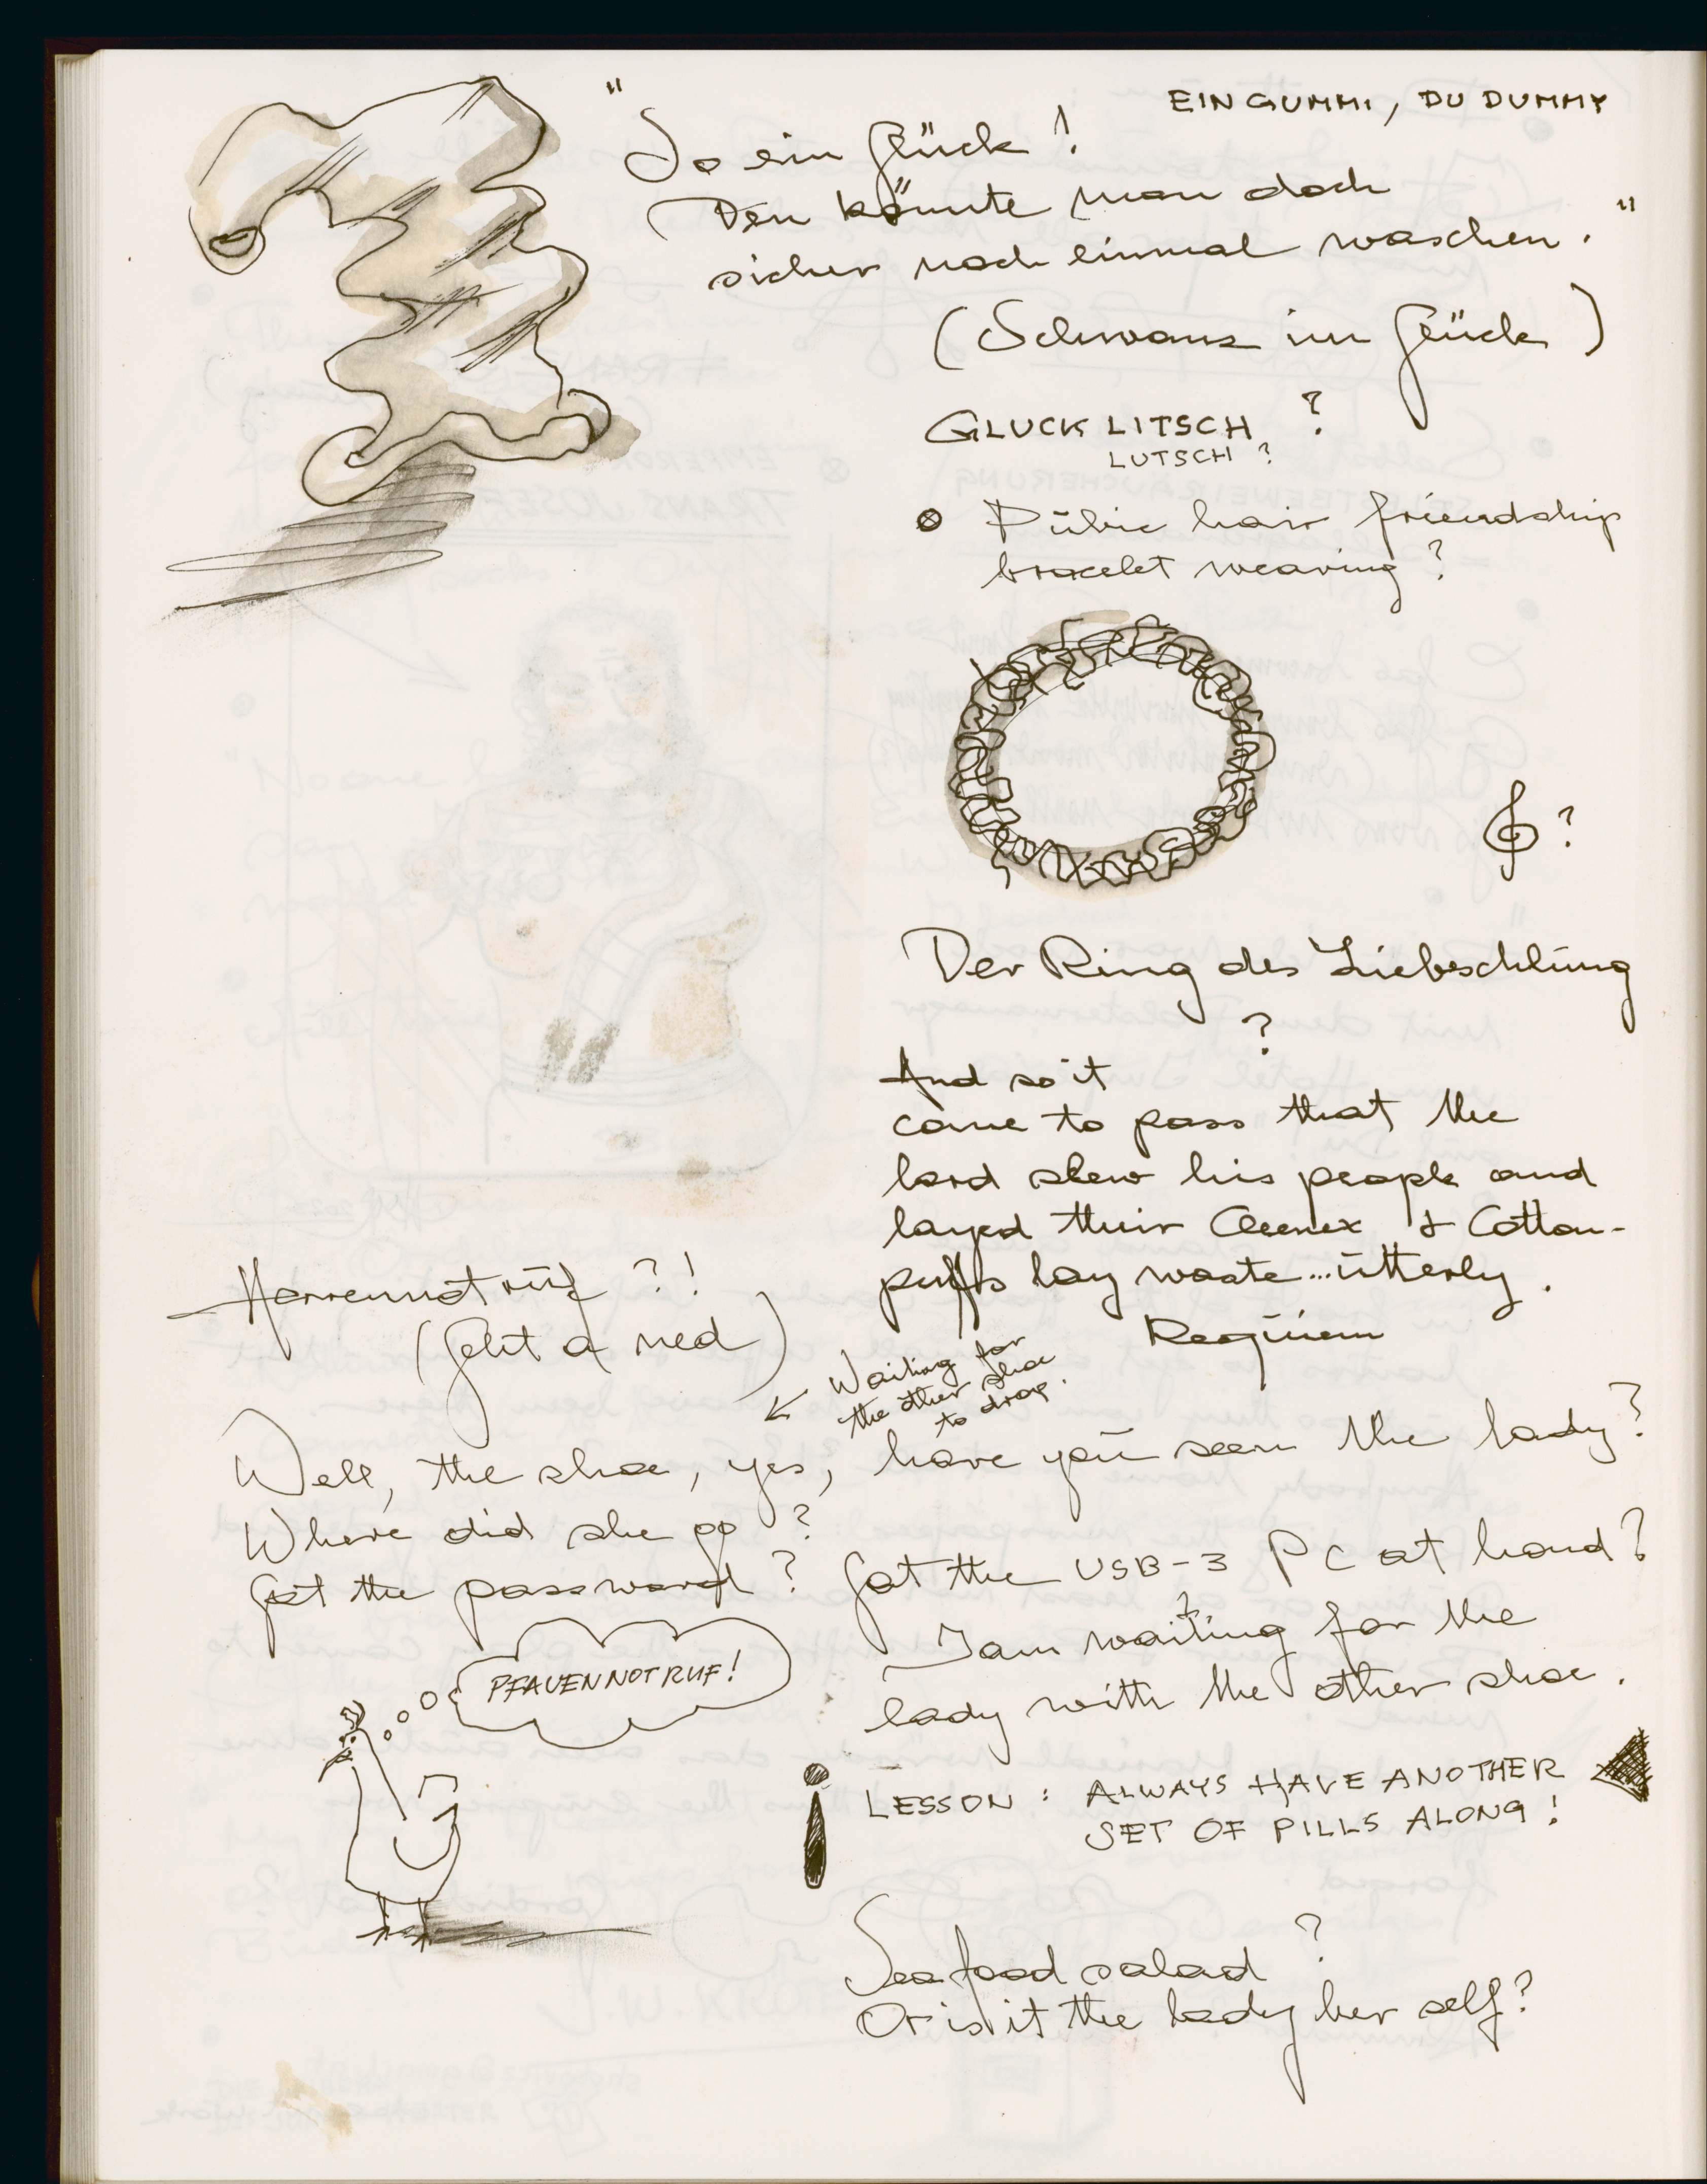 EIN GUMMI, DU DUMMY
"So ein Glück!
Den könnte man doch
sicher noch einmal waschen."
(Schwanz im Glück)
GLUCK LITSCH ?
LUTSCH ?
⊗ Pubic hair friendship
bracelet weaving?
𝄞 ?
Der Ring des Liebeschlüng
?
And so it
came to pass that the
lord slew his people and
layed their Cleenex & Cotton-
puffs lay waste...utterly.
Requiem
Herrennotruf ?!
(Geht a ned)
Waiting for
the other shoe
to drop.
Well, the shoe, yes, have you seen the lady?
Where did she go ?
Got the password ? Got the USB-3 PC at hand?
I am waiting for the
lady with the other shoe.
PFAUENNOTRUF!
LESSON : ALWAYS HAVE ANOTHER
SET OF PILLS ALONG!
Seafood salad ?
Or is it the lady her self?